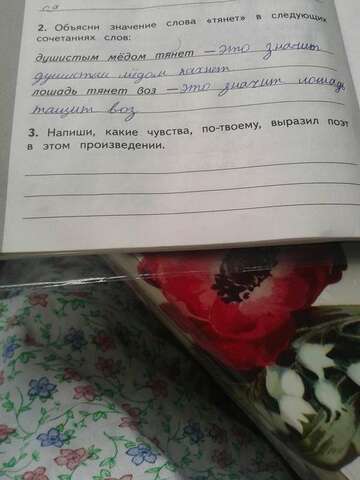 2. Объясни значение слова «тянет» в следующих
сочетаниях слов:
душистым мёдом тянет – это значит
душистым мёдом пахнет
лошадь тянет воз – это значит лошадь
тащит воз
3. Напиши, какие чувства, по-твоему, выразил поэт
в этом произведении.